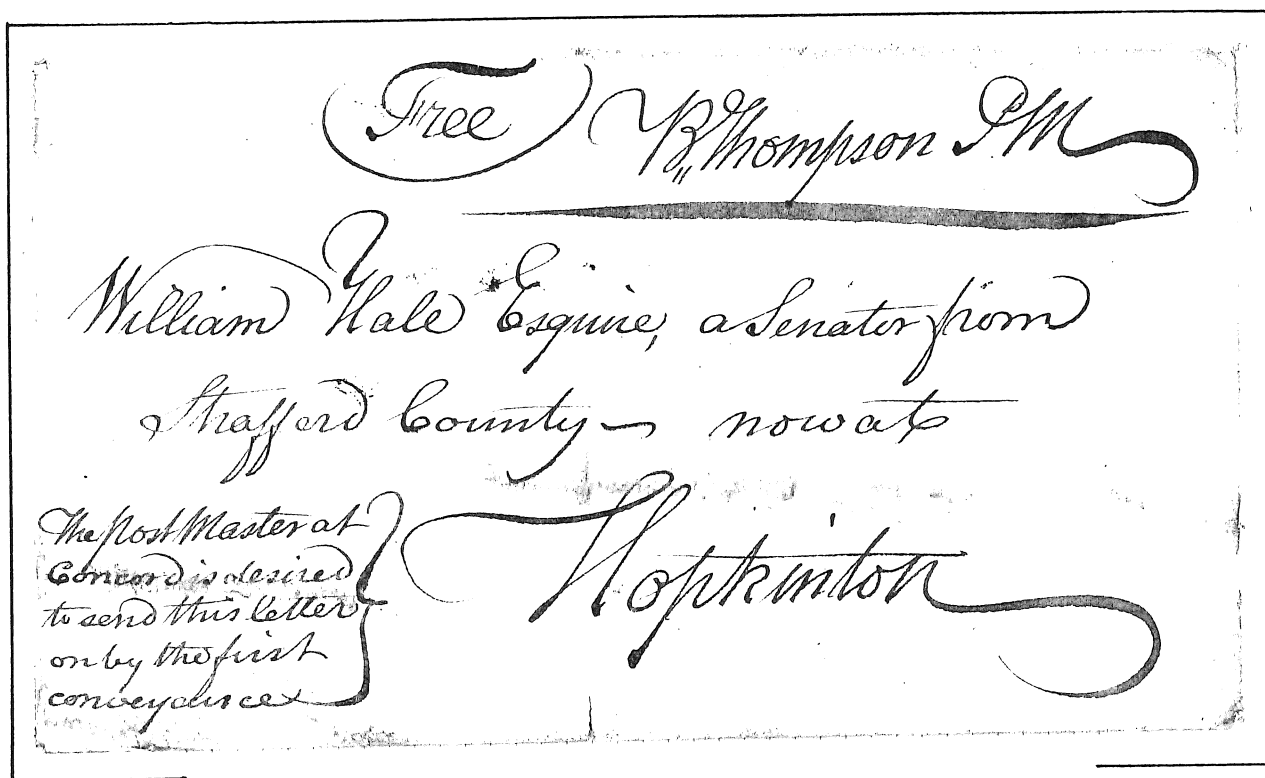 Free B,, Thompson PM
William Hale Esquire, a Senator from
Strafford County — now at
Hopkinton
The post Master at
Concord is desired
to send this letter
on by the first
conveyance